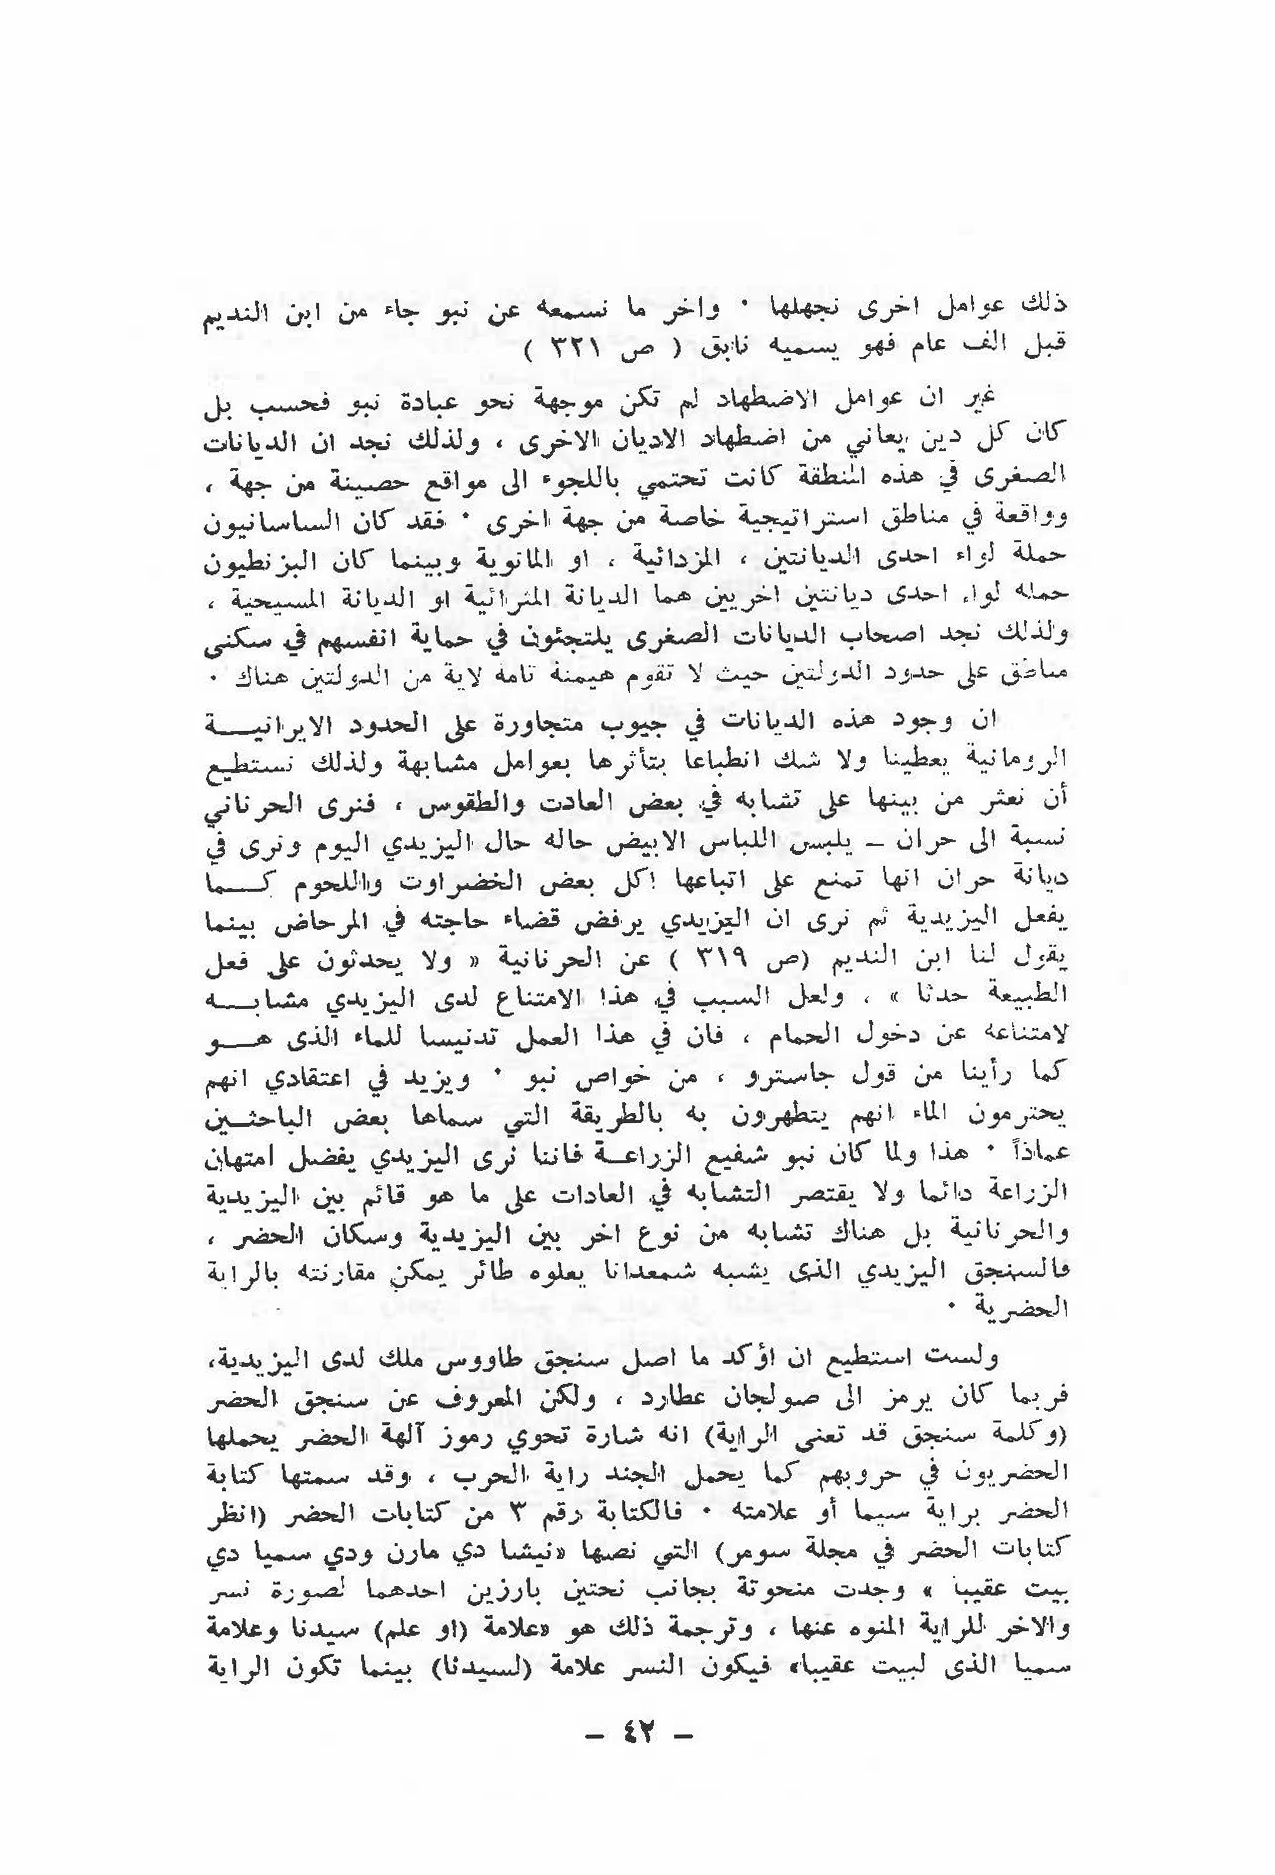 ذلك عوامل اخرى نجهلها ٠ واخر ما نسمعه عن نبو جاء من ابن النديم
قبل الف عام فهو يسميه نابق ( ص ٣٢١ )
غير ان عوامل الاضطهاد لم تكن موجهة نحو عبادة نبو فحسب بل
كان كل دين يعاني من اضطهاد الاديان الاخرى ، ولذلك نجد ان الديانات
الصغرى في هذه المنطقة كانت تحتمي باللجوء الى مواقع حصينة من جهة ،
وواقعة في مناطق استراتيجية خاصة من جهة اخرى ٠ فقد كان الساسانيون
حملة لواء احدى الديانتين ، المزدائية ، او المانوية وبينما كان البزنطيون
حمله لواء احدى ديانتين اخريين هما الديانة المثرائية او الديانة المسيحية ،
ولذلك نجد اصحاب الديانات الصغرى يلتجئون في حماية انفسهم في سكنى
مناطق على حدود الدولتين حيث لا تقوم هيمنة تامه لاية من الدولتين هناك ٠
ان وجود هذه الديانات في جيوب متجاورة على الحدود الايرانيـــة
الرومانية يعطينا ولا شك انطباعا بتأثرها بعوامل مشابهة ولذلك نستطيع
أن نعثر من بينها على تشابه في بعض العادت والطقوس ، فنرى الحرناني
نسبة الى حران – يلبس اللباس الابيض حاله حال اليزيدي اليوم ونرى في
ديانة حران انها تمنع على اتباعها اكل بعض الخضراوت واللحوم كـــما
يفعل اليزيدية ثم نرى ان اليزيدي يرفض قضاء حاجته في المرحاض بينما
يقول لنا ابن النديم (ص ٣١٩ ) عن الحرنانية « ولا يحدثون على فعل
الطبيعة حدثا » ، ولعل السبب في هذا الامتناع لدى اليزيدي مشابـــه
لامتناعه عن دخول الحمام ، فان في هذا العمل تدنيسا للماء الذى هـــو
كما رأينا من قول جاسترو ، من خواص نبو ٠ ويزيد في اعتقادي انهم
يحترمون الماء انهم يتطهرون به بالطريقة التي سماها بعض الباحثـين
عماذاً ٠ هذا ولما كان نبو شفيع الزراعـة فاننا نرى اليزيدي يفضل امتهان
الزراعة دائما ولا يقتصر التشابه في العادات على ما هو قائم بين اليزيدية
والحرنانية بل هناك تشابه من نوع اخر بين اليزيدية وسكان الحضر ،
فالسنجق اليزيدي الذى يشبه شمعدانا يعلوه طائر يمكن مقارنته بالراية
الحضرية ٠
ولست استطيع ان اؤكد ما اصل سنجق طاووس ملك لدى اليزيدية،
فربما كان يرمز الى صولجان عطارد ، ولكن المعروف عن سنجق الحضر
(وكلمة سنجق قد تعنى الراية) انه شارة تحوي رموز آلهة الحضر يحملها
الحضريون في حروبهم كما يحمل الجند راية الحرب ، وقد سمتها كتابة
الحضر براية سيما أو علامته ٠ فالكتابة رقم ٣ من كتابات الحضر (انظر
كتابات الحضر في مجلة سومر) التي نصها «نيشا دي مارن ودي سميا دي
بيت عقيبا » وجدت منحوتة بجانب نحتين بارزين احدهما لصورة نسر
والاخر للراية المنوه عنها ، وترجمة ذلك هو «علامة (او علم) سيدنا وعلامة
سميا الذى لبيت عقيبا» فيكون النسر علامة (لسيدنا) بينما تكون الراية
– ٤٢ –